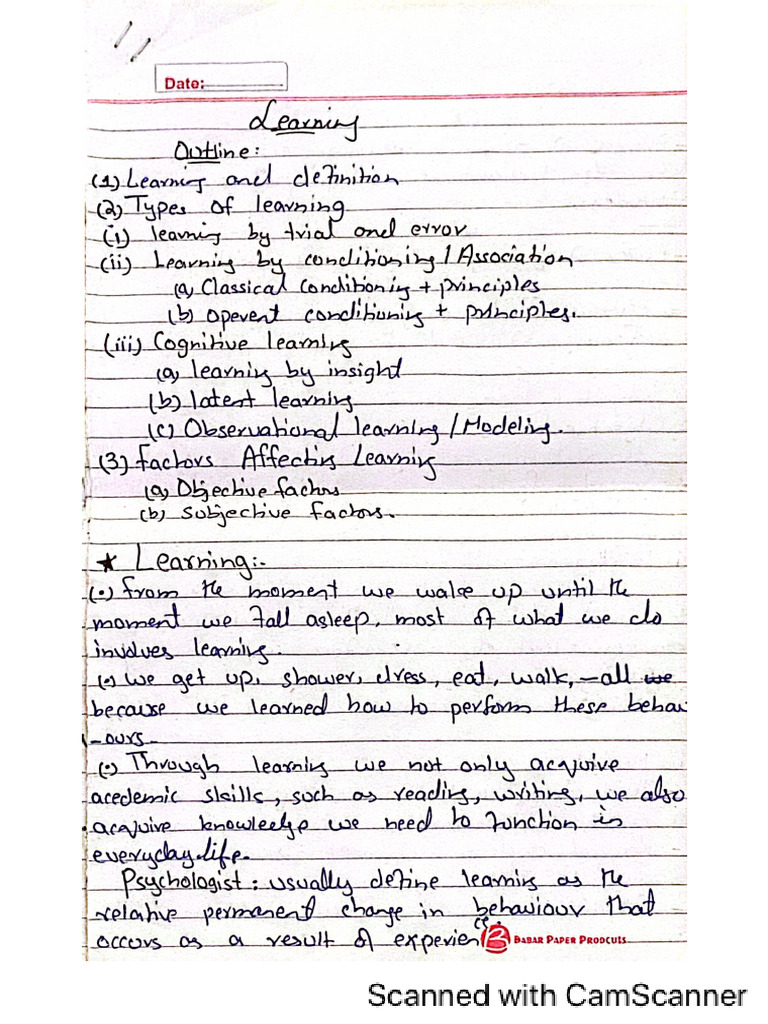 Date:
Learning
Outline:
(1) Learning and definition
(2) Types of learning
(i) learning by trial and error
(ii) Learning by conditioning / Association
(a) Classical conditioning + principles
(b) Opevent conditioning + principles.
(iii) Cognitive learning
(a) learning by insight
(b) latent learning
(c) Observational learning / Modeling.
(3) Factors Affecting Learning
(a) Objective factors
(b) Subjective factors.
★ Learning:-
(•) From the moment we wake up until the
moment we fall asleep, most of what we do
involves learning.
(•) We get up, shower, dress, eat, walk, - all we
because we learned how to perform these behav
-ours.
(•) Through learning we not only acquire
acedemic skills, such as reading, writing, we also
acquire knowledge we need to function in
everyday life.
Psychologist: usually define learning as the
relative permenent change in behaviour that
occurs as a result of experience
BABAR PAPER PRODCUTS
Scanned with CamScanner